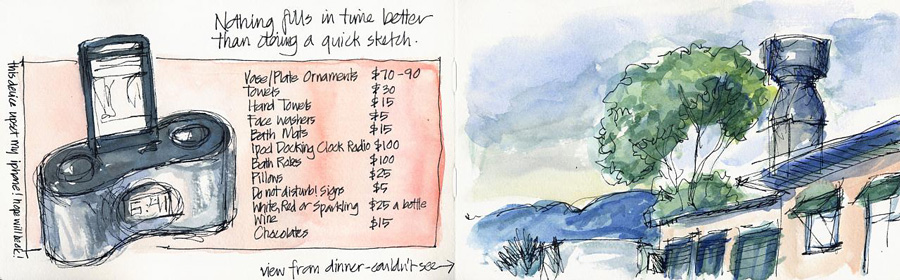 Nothing fills in time better
than doing a quick sketch.
Vase/Plate Ornaments $70-90
Towels $30
Hand Towels $15
Face Washers $5
Bath Mats $15
Ipod Docking Clock Radio $100
Bath Robes $100
Pillows $25
Do not disturb! Signs $5
White, Red or Sparkling $25 a bottle
Wine
Chocolates $15
this device upset my iphone! hope will be ok!
5:41
view from dinner - couldn't see →